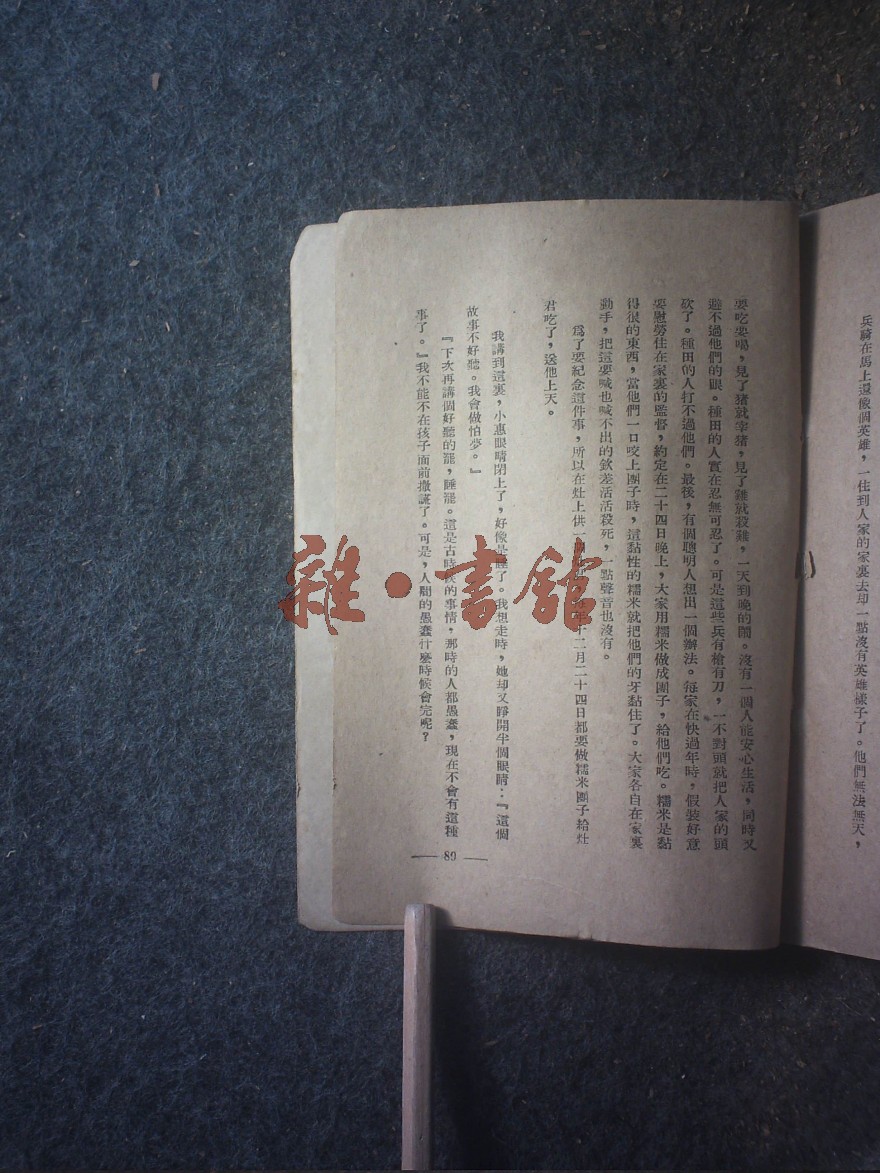 兵騎在馬上還像個英雄，一住到人家的家裏去却一點沒有英雄樣子了。他們無法無天，
要吃要喝，見了猪就宰猪，見了雞就殺雞，一天到晚的鬧。沒有一個人能安心生活，同時又
避不過他們的眼。種田的人實在忍無可忍了。可是這些兵有槍有刀，一不對頭就把人家的頭
砍了。種田的人打不過他們。最後，有個聰明人想出一個辦法。每家在快過年時，假裝好意
要慰勞住在家裏的監督，約定在二十四日晚上，大家用糯米做成團子，給他們吃。糯米是黏
得很的東西，當他們一口咬上團子時，這黏性的糯米就把他們的牙黏住了。大家各自在家裏
動手，把這要喊也喊不出的欽差活活殺死，一點聲音也沒有。
爲了要紀念這件事，所以在灶上供一個灶君，每年十二月二十四日都要做糯米團子給灶
君吃了，送他上天。
我講到這裏，小惠眼睛閉上了，好像是睡了。我想走時，她却又睜開半個眼睛：『這個
故事不好聽。我會做怕夢。』
『下次再講個好聽的罷，睡罷。這是古時候的事情，那時的人都愚蠢，現在不會有這種
事了。』我不能不在孩子面前撒謊了。可是，人間的愚蠢什麽時候會完呢？
— 89 —
雜·書館